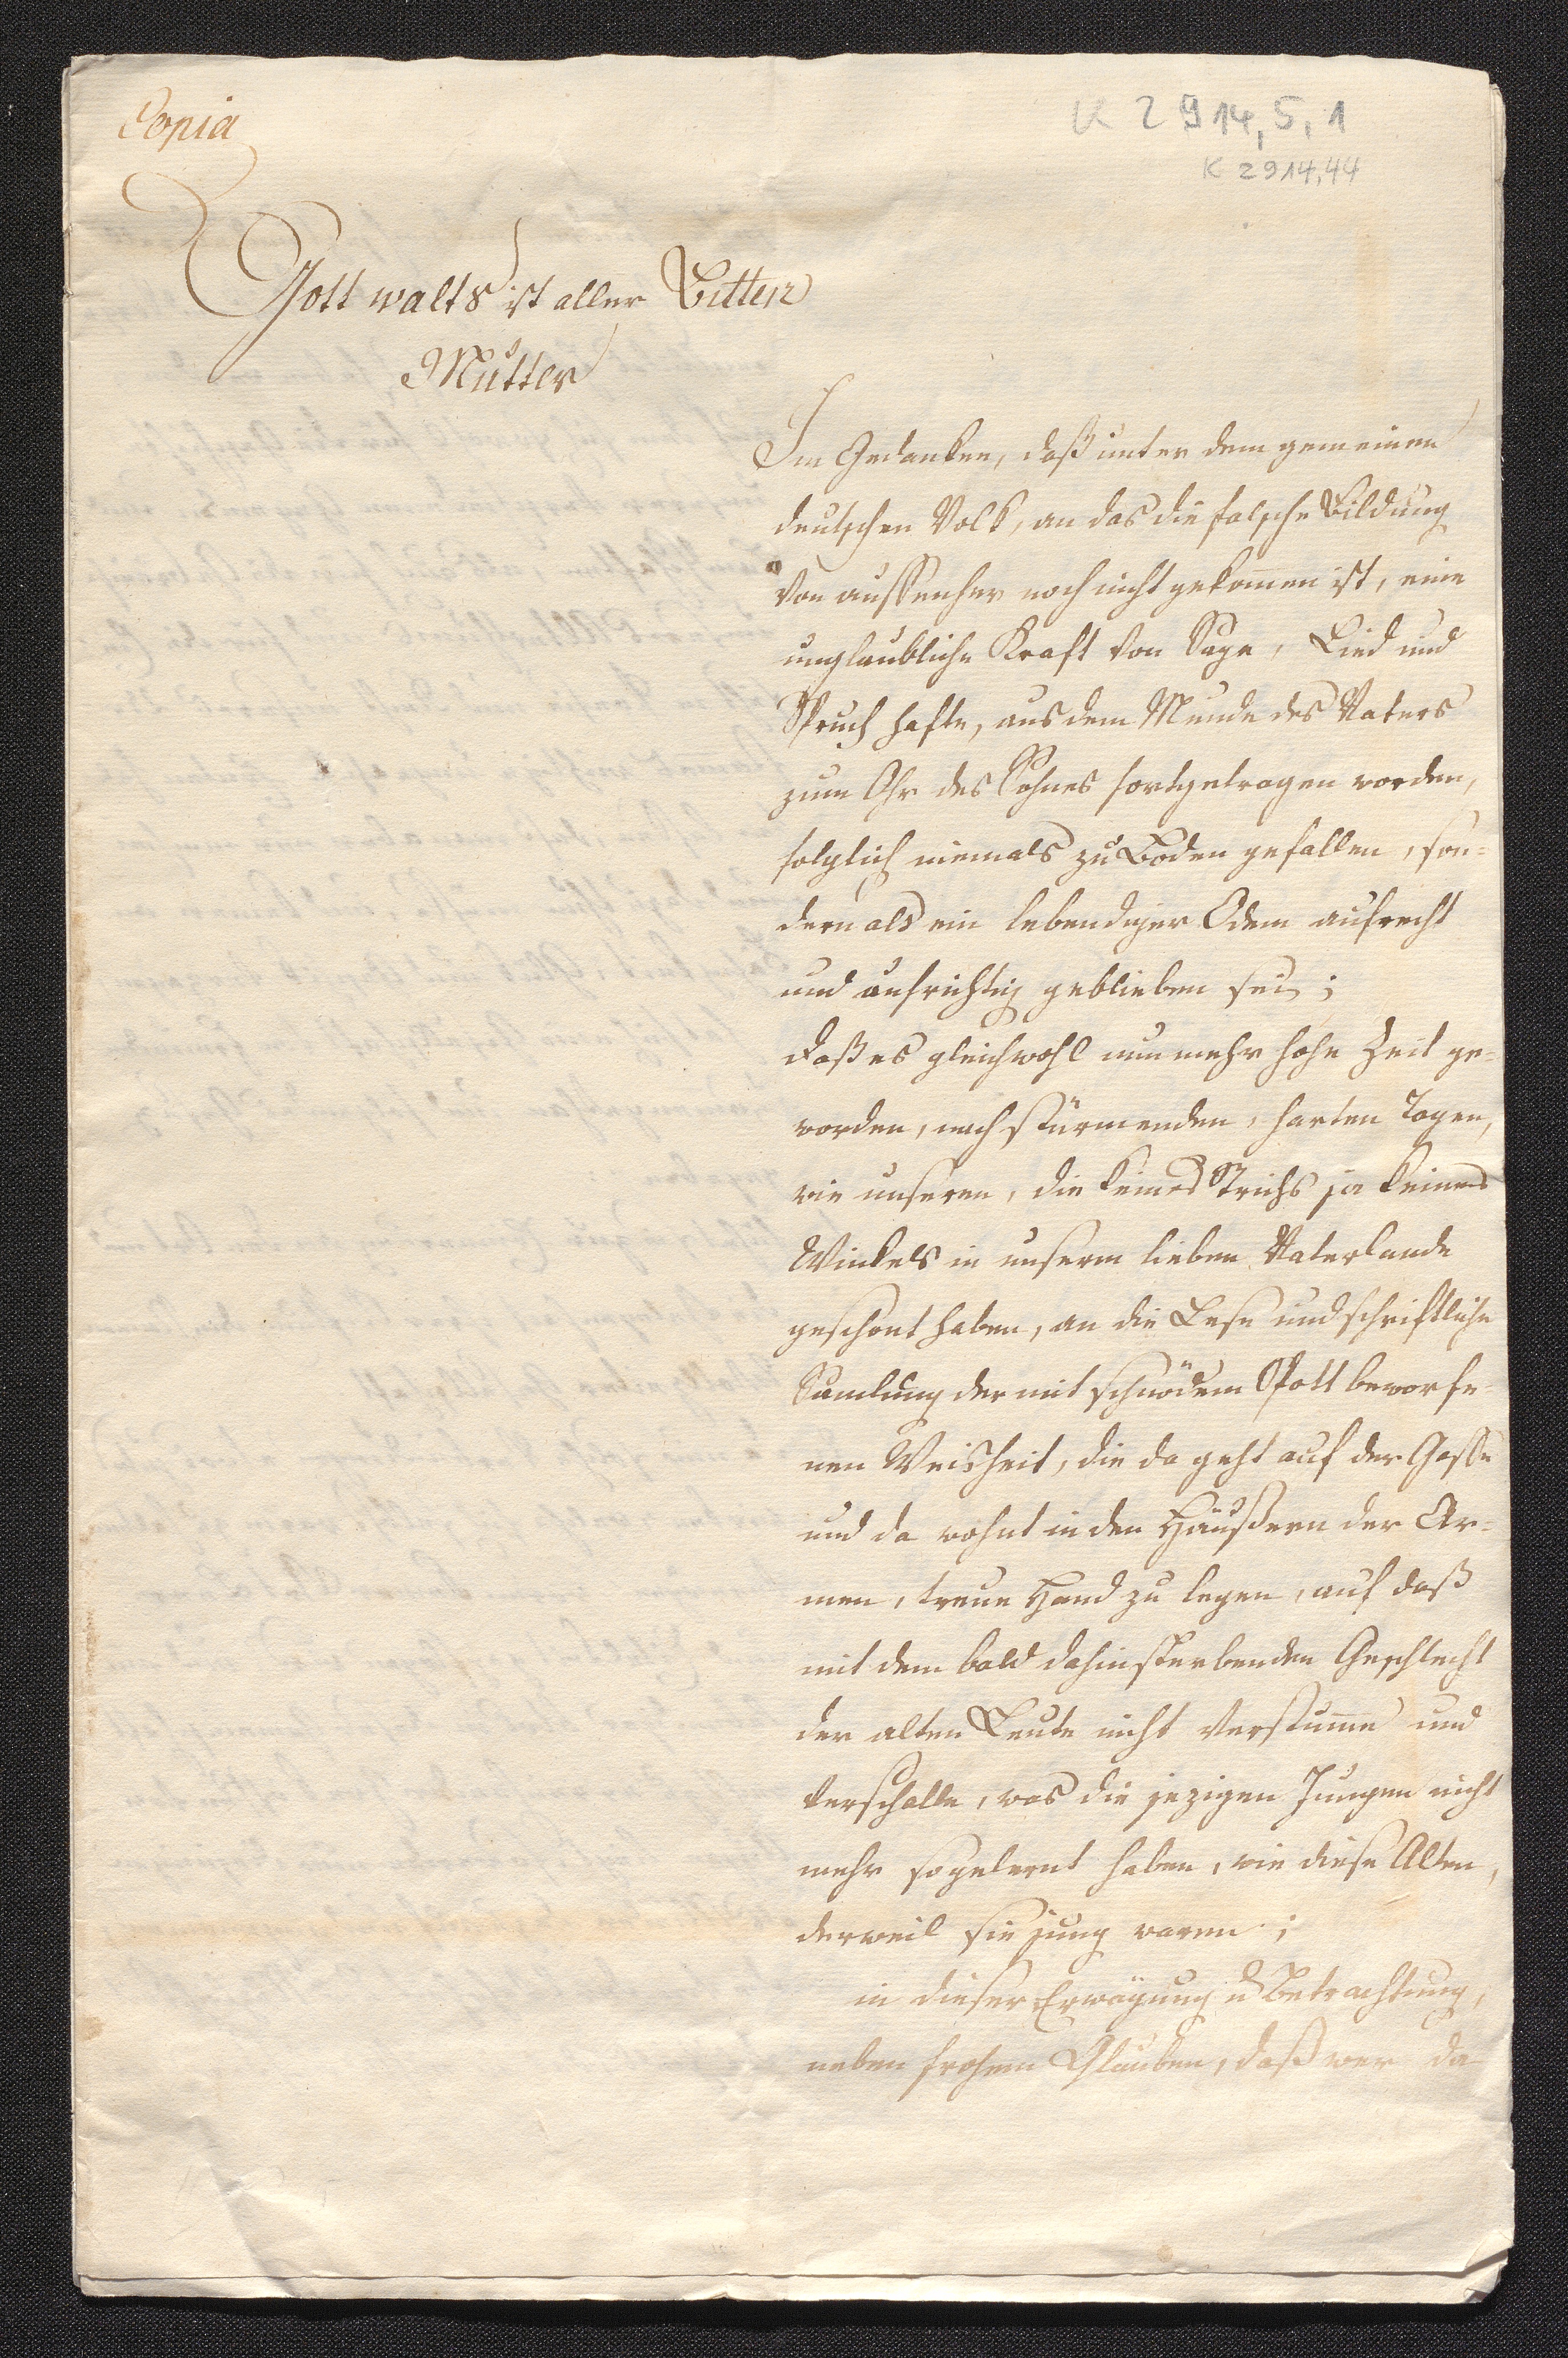 Copia
K 2914,5,1
K 2914,44
Gott walts ist aller Bitten
Mutter
Im Gedanken, daß unter dem gemeinen
deutschen Volk, an das die falsche Bildung
von aussenher noch nicht gekom̅en ist, eine
unglaubliche Kraft von Sage, Lied und
Spruch hafte, aus dem Munde des Vaters
zum Ohr des Sohnes fortgetragen worden,
folglich niemals zu Boden gefallen, son-
dern als ein lebendiger Odem aufrecht
und aufrichtig geblieben sei;
daß es gleichwohl nunmehr hohe Zeit ge-
worden, nach stürmenden, harten Tagen,
wie unseren, die keines Strichs ja keines
Winkels in unserm lieben Vaterlande
geschont haben, an die Lese und schriftliche
Samlung der mit schnödem Spott beworfe-
nen Weisheit, die da geht auf der Gasse
und da wohnt in den Häußern der Ar-
men, treue Hand zu legen, auf daß
mit dem bald dahinsterbenden Geschlecht
der alten Leute nicht verstum̅e und
verschalle, was die jezigen Jungen nicht
mehr so gelernt haben, wie diese Alten,
derweil sie jung waren;
in dieser Erwägung u Betrachtung,
neben frohem Glauben, daß wer da